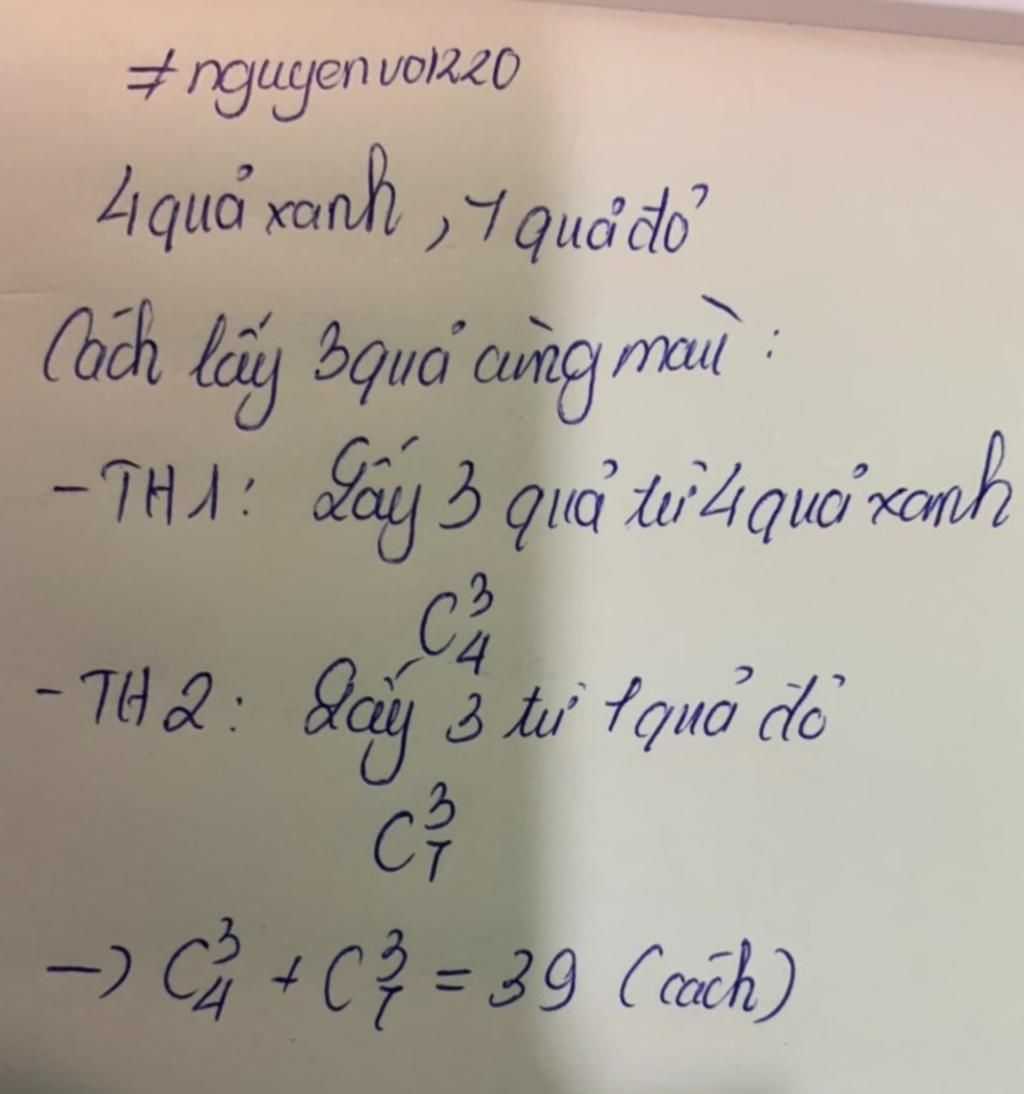 #nguyenvo1220
4 quả xanh, 7 quả đỏ
Cách lấy 3 quả cùng màu:
- TH1: Lấy 3 quả từ 4 quả xanh
C³₄
- TH2: Lấy 3 từ 7 quả đỏ
C³₇
→ C³₄ + C³₇ = 39 (cách)